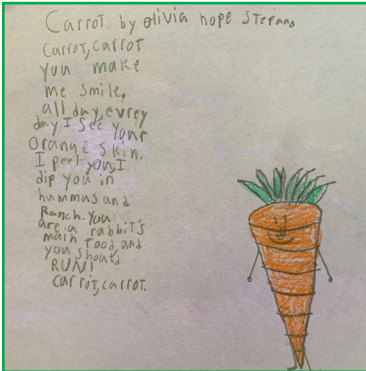 Carrot by Olivia hope Stefano
Carrot, carrot
you make
me smile.
all day, evrey
day I See your
orange skin.
I peel you, I
dip you in
hummus and
Ranch. You
are a rabbit's
main food, and
you should
RUN!
Carrot, carrot.